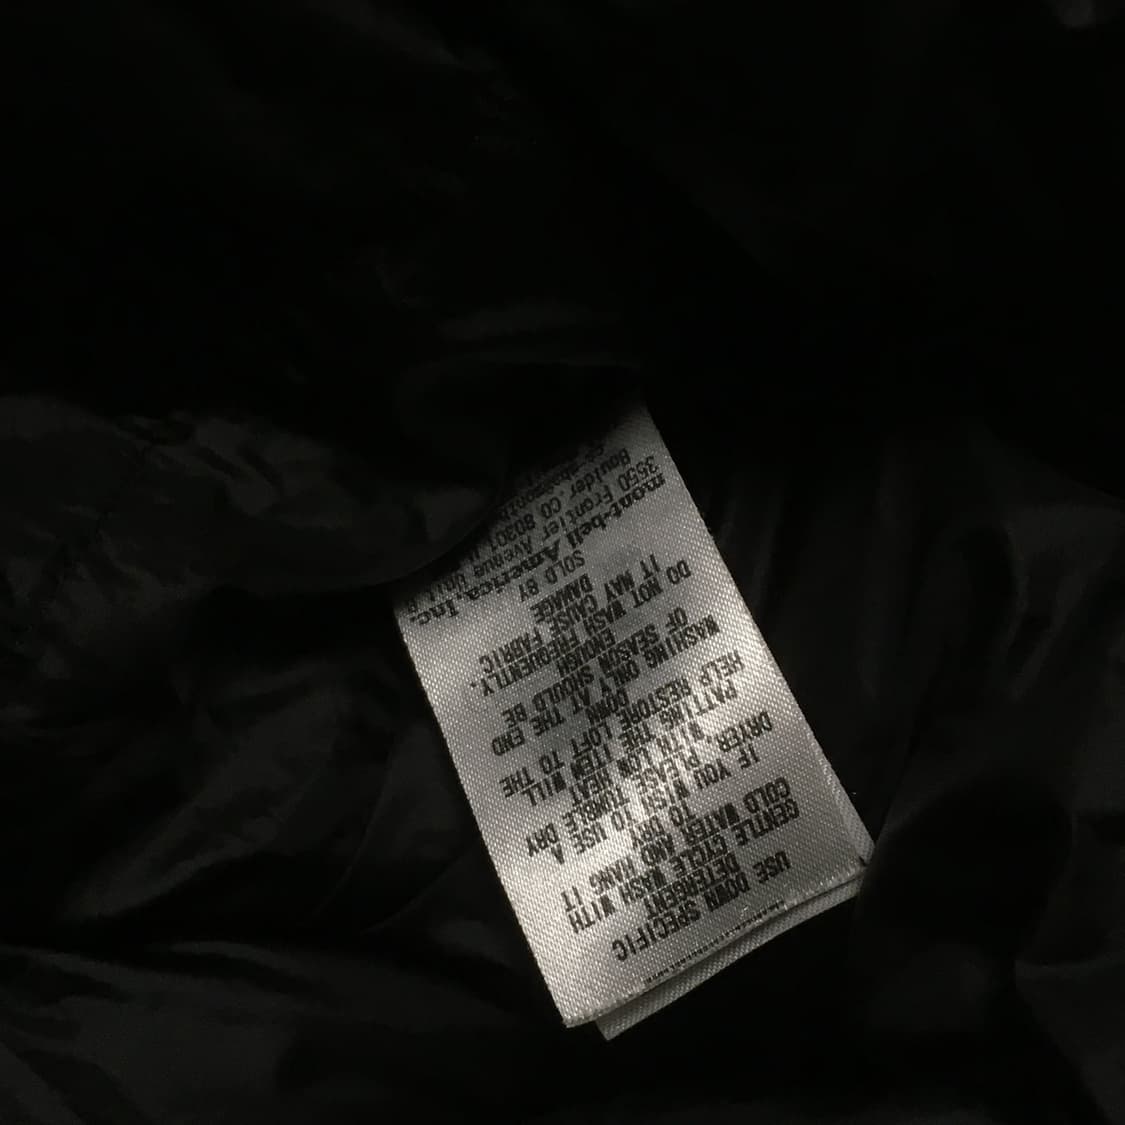 USE DOWN SPECIFIC
DETERGENT
GENTLE CYCLE WASH WITH
COLD WATER AND HANG IT
TO DRY
IF YOU WASH TO USE A
PLEASE TUMBLE DRY
DRYER. LOW HEAT
WITH ITEM WILL
PATTING THE LOFT TO THE
HELP RESTORE
DOWN
WASHING ONLY AT THE END
OF SEASON SHOULD BE
ENOUGH
DO NOT WASH FREQUENTLY.
IT MAY CAUSE FABRIC
DAMAGE
SOLD BY
mont-bell America, Inc.
3550 Frontier Avenue Unit
Boulder, CO 80301